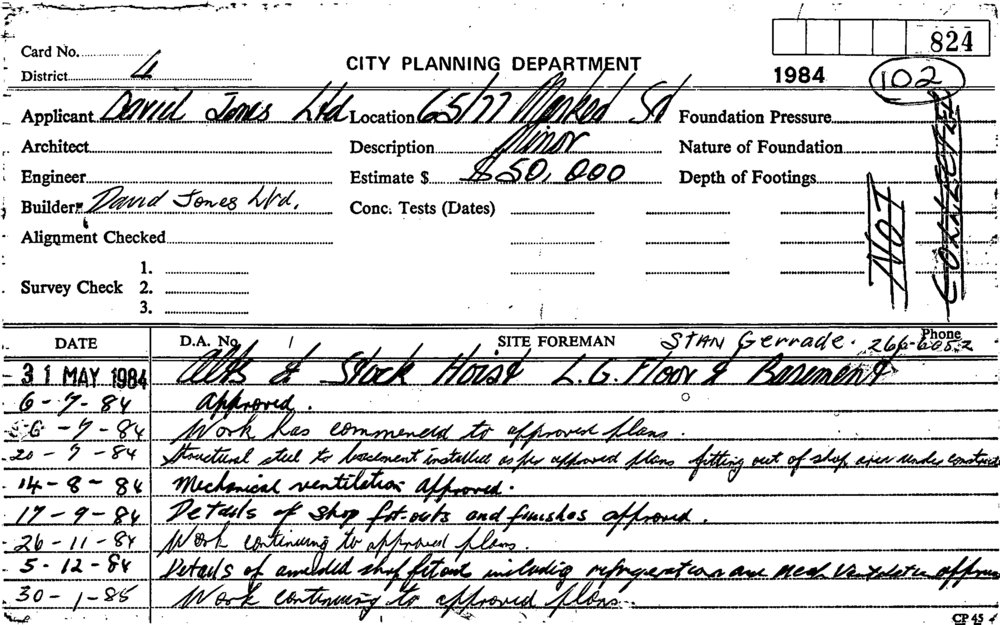 824
Card No.
District 4
CITY PLANNING DEPARTMENT
1984
102
Applicant David Jones Ltd Location 65/77 Market St Foundation Pressure
Architect Description Minor Nature of Foundation
Engineer Estimate $ $50,000 Depth of Footings
Builder David Jones Ltd. Conc. Tests (Dates)
NOT
Alignment Checked
Survey Check 1.
2.
3.
DATE D.A. No. SITE FOREMAN STAN Gerrade. Phone 266-6052
31 MAY 1984 Alts & Stock Hoist L.G. Floor & Basement
6-7-84 Approved.
6-7-84 Work has commenced to approved plans.
20-7-84 Structural steel to basement installed as per approved plans fitting out of shop area under
14-8-84 Mechanical ventilation Approved.
17-9-84 Details of shop fit-outs and finishes approved.
26-11-84 Work continuing to approved plans.
5-12-84 Details of amended shop fitouts including refrigeration and mech ventilation
30-1-85 Work continuing to approved plans.
CP 45